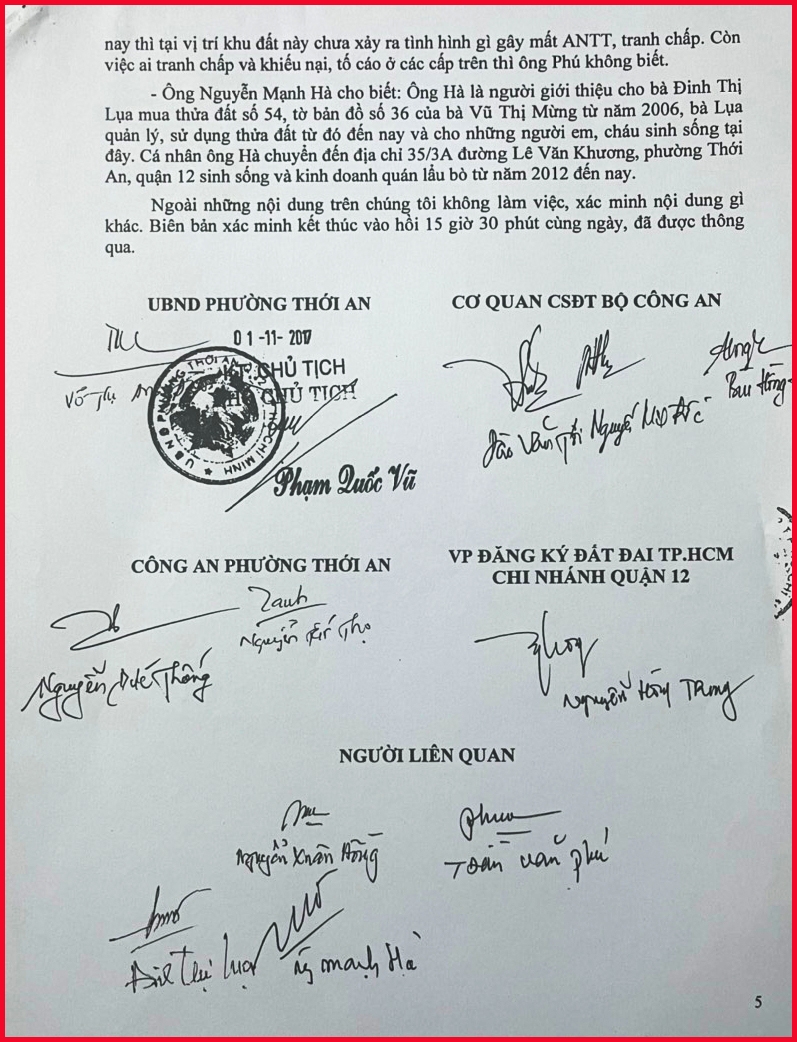 nay thì tại vị trí khu đất này chưa xảy ra tình hình gì gây mất ANTT, tranh chấp. Còn
việc ai tranh chấp và khiếu nại, tố cáo ở các cấp trên thì ông Phú không biết.
- Ông Nguyễn Mạnh Hà cho biết: Ông Hà là người giới thiệu cho bà Đinh Thị
Lụa mua thửa đất số 54, tờ bản đồ số 36 của bà Vũ Thị Mừng từ năm 2006, bà Lụa
quản lý, sử dụng thửa đất từ đó đến nay và cho những người em, cháu sinh sống tại
đây. Cá nhân ông Hà chuyển đến địa chỉ 35/3A đường Lê Văn Khương, phường Thới
An, quận 12 sinh sống và kinh doanh quán lẩu bò từ năm 2012 đến nay.
Ngoài những nội dung trên chúng tôi không làm việc, xác minh nội dung gì
khác. Biên bản xác minh kết thúc vào hồi 15 giờ 30 phút cùng ngày, đã được thông
qua.
UBND PHƯỜNG THỚI AN
01-11-2017
KT. CHỦ TỊCH
PHÓ CHỦ TỊCH
Võ Thị
Phạm Quốc Vũ
CƠ QUAN CSĐT BỘ CÔNG AN
Đào Văn Nguyễn
CÔNG AN PHƯỜNG THỚI AN
Nguyễn Thọ
Nguyễn Đức Thống
VP ĐĂNG KÝ ĐẤT ĐAI TP.HCM
CHI NHÁNH QUẬN 12
Nguyễn Trung
NGƯỜI LIÊN QUAN
Nguyễn Xuân Hồng
Toàn văn phú
Đinh Thị Lụa
Ng mạnh Hà
5